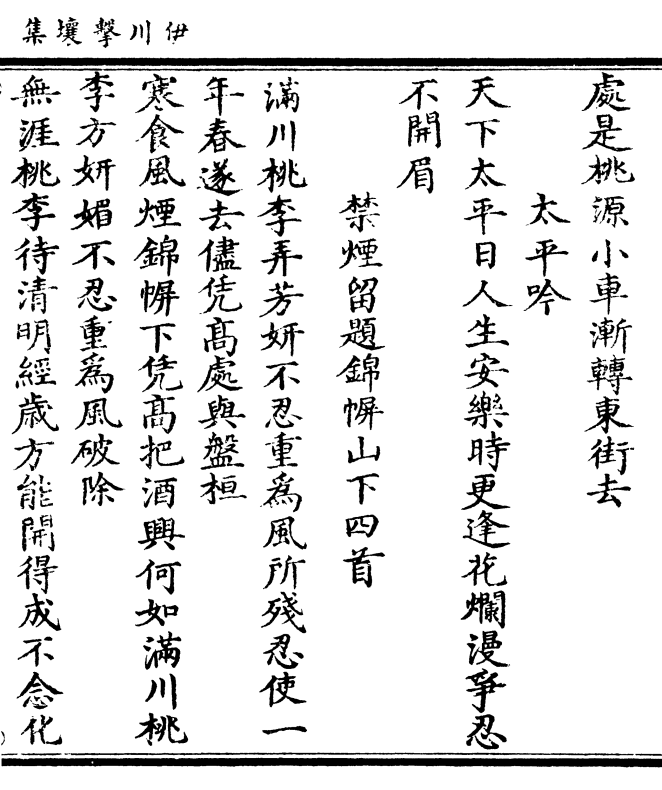 伊川擊壤集
處是桃源小車漸轉東街去
太平吟
天下太平日人生安樂時更逢花爛漫爭忍
不開眉
禁煙留題錦幈山下四首
滿川桃李弄芳妍不忍重爲風所殘忍使一
年春遂去儘凭髙處與盤桓
寒食風煙錦幈下凭髙把酒興何如滿川桃
李方妍媚不忍重爲風破除
無涯桃李待清明經歲方能開得成不念化